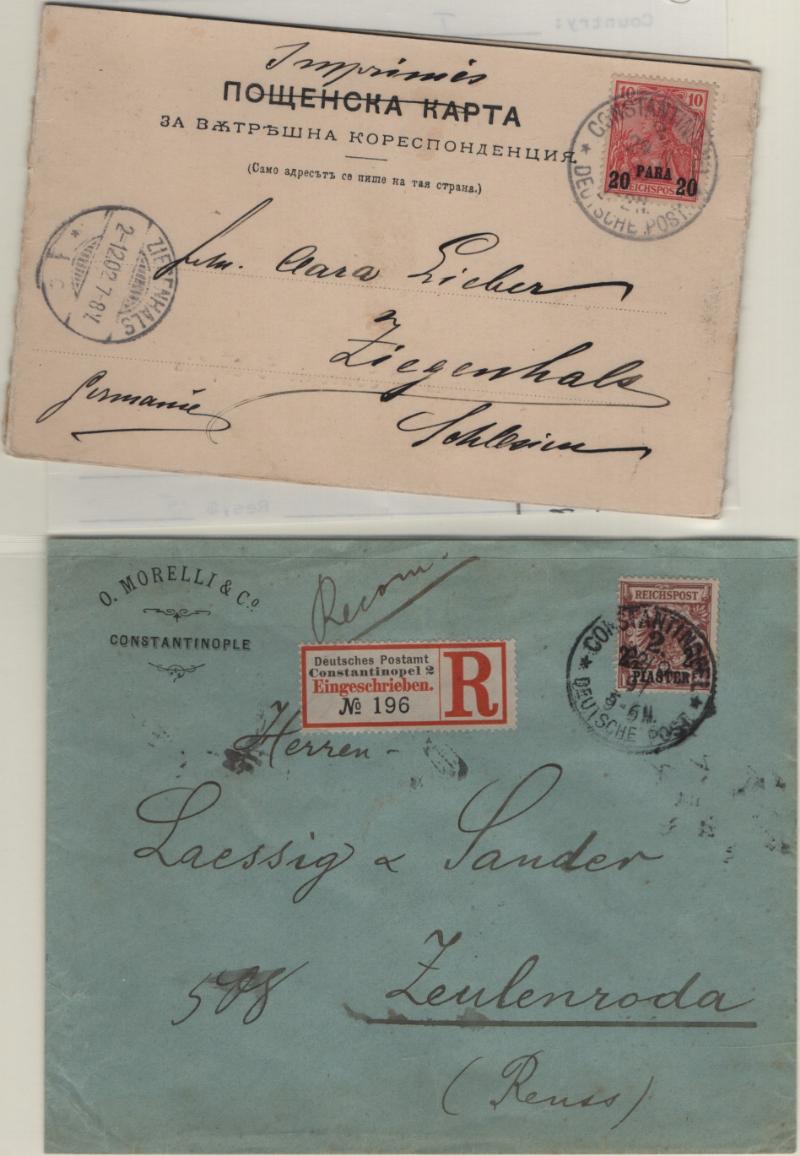 Country: T
Imprimés
ПОЩЕНСКА КАРТА
ЗА ВѪТРѢШНА КОРЕСПОНДЕНЦИЯ.
(Само адресътъ се пише на тая страна.)
10 10
20 PARA 20
REICHSPOST
CONSTANTINOPEL
DEUTSCHE POST
ZIEGENHALS
2-12.02.7-8V.
Clara Lieber
Ziegenhals
Germanie
Schlesien
O. MORELLI & Co.
CONSTANTINOPLE
Recom.
REICHSPOST
2
PIASTER
CONSTANTINOPEL
97
5-6N.
DEUTSCHE POST
Deutsches Postamt
Constantinopel 2
Eingeschrieben.
№ 196
R
Herren
Laessig & Sander
508
Zeulenroda
(Reuss)